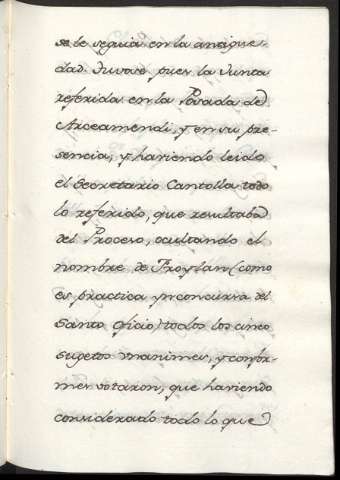 se le seguia en la antigue-
dad. Tuvose pues la Junta
referida en la Posada de
Arceamendi, y en su pre-
sencia, y haviendo leido
el Secretario Cantolla todo
lo referido, que resultaba
del Proceso, ocultando el
nombre de Froylan (como
es practica ynconcusa del
Santo Oficio) todos los cinco
sugetos unanimes, y confor-
mes votaron, que haviendo
considerado todo lo que